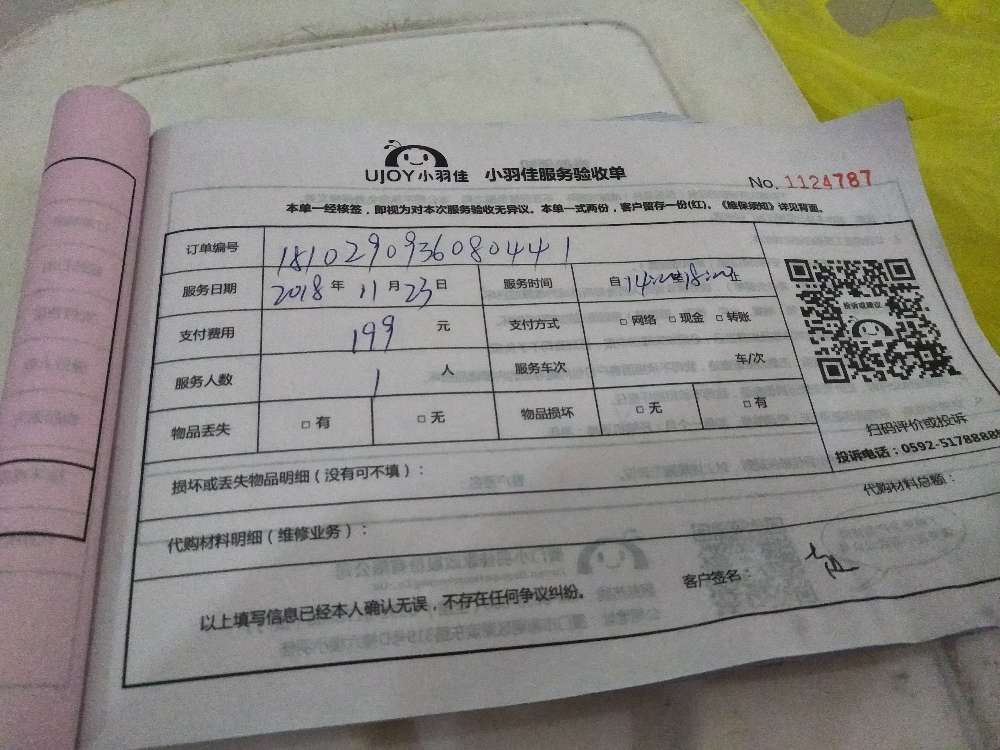 UJOY小羽佳 小羽佳服务验收单 No. 1124787
本单一经核签，即视为对本次服务验收无异议。本单一式两份，客户留存一份(红)、《维保须知》详见背面。
订单编号 1810290936080441
服务日期 2018 年 11 月 23 日 服务时间 自 14:00至18:00止
支付费用 199 元 支付方式 □ 网络 □ 现金 □ 转账
服务人数 1 人 服务车次 车/次
物品丢失 □ 有 □ 无 物品损坏 □ 无 □ 有
投诉或建议
扫码评价或投诉
投诉电话：0592-5178888
损坏或丢失物品明细（没有可不填）：
代购材料明细（维修业务）： 代购材料总额：
以上填写信息已经本人确认无误，不存在任何争议纠纷。 客户签名：